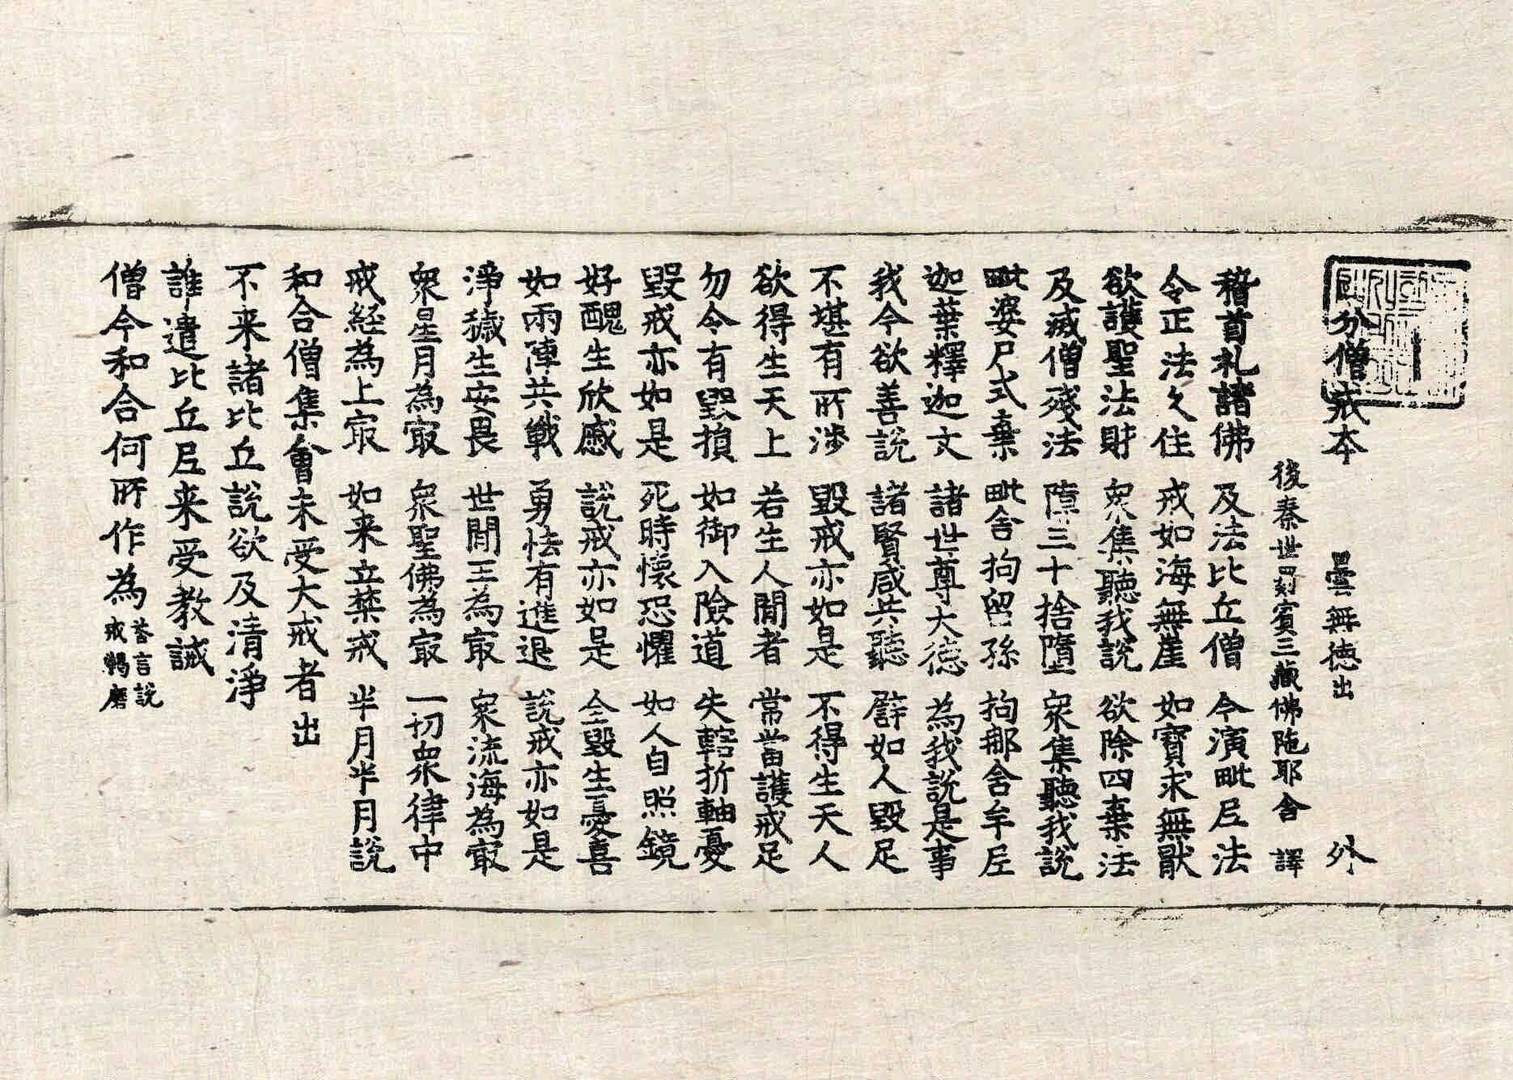 分僧戒本 曇無德出 外
後秦世罽賓三藏佛陁耶舍 譯
稽首礼諸佛 及法比丘僧 今演毗尼法
令正法久住 戒如海無崖 如寶求無猒
欲護聖法財 衆集聽我說 欲除四棄法
及滅僧殘法 障三十捨墮 衆集聽我說
毗婆尸式棄 毗舍拘留孫 拘那舍牟尼
迦葉釋迦文 諸世尊大德 為我說是事
我今欲善說 諸賢咸共聽 譬如人毀足
不堪有所涉 毀戒亦如是 不得生天人
欲得生天上 若生人間者 常當護戒足
勿令有毀損 如御入險道 失轄折軸憂
毀戒亦如是 死時懷恐懼 如人自照鏡
好醜生欣慼 說戒亦如是 全毀生憂喜
如兩陣共戰 勇怯有進退 說戒亦如是
淨穢生安畏 世間王為冣 衆流海為冣
衆星月為冣 衆聖佛為冣 一切衆律中
戒経為上冣 如来立禁戒 半月半月說
和合僧集會未受大戒者出
不来諸比丘說欲及清淨
誰遣比丘尼来受教誡
僧今和合何所作為 荅言說戒羯磨